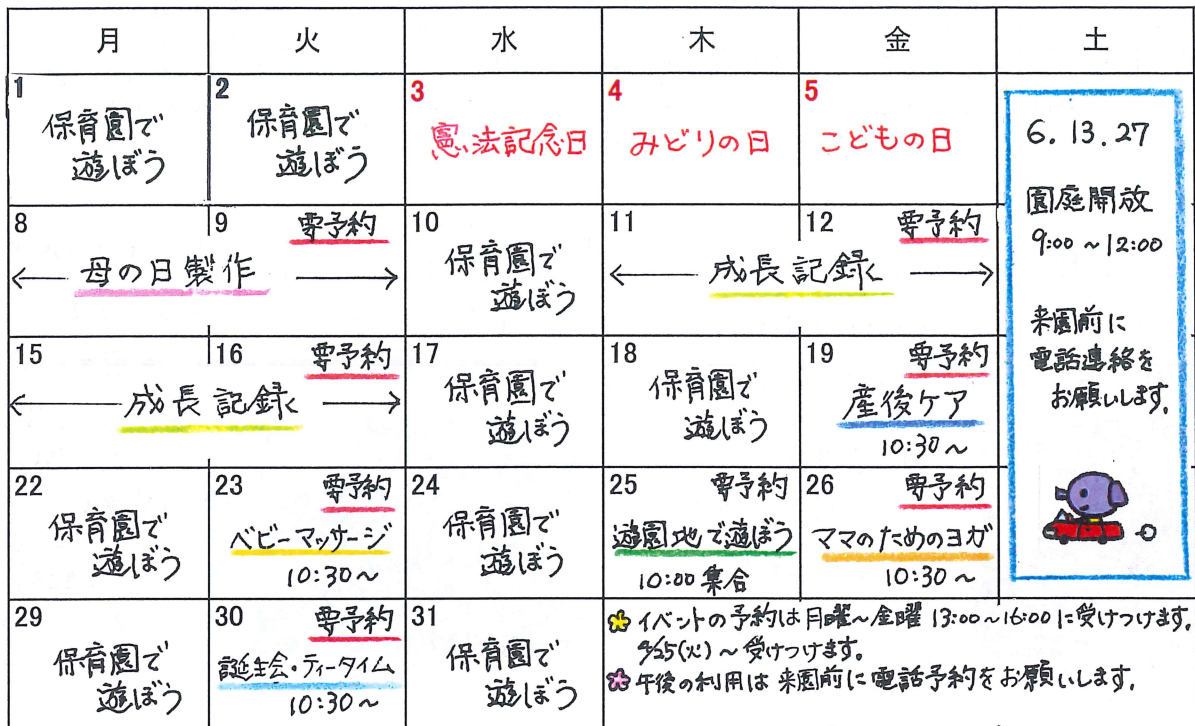 月 火 水 木 金 土
1
保育園で
遊ぼう
2
保育園で
遊ぼう
3
憲法記念日
4
みどりの日
5
こどもの日
6. 13. 27
園庭開放
9:00～12:00
来園前に
電話連絡を
お願いします。
8
9 要予約
母の日製作
10
保育園で
遊ぼう
11
12 要予約
成長記録
15
16 要予約
成長記録
17
保育園で
遊ぼう
18
保育園で
遊ぼう
19 要予約
産後ケア
10:30～
22
保育園で
遊ぼう
23 要予約
ベビーマッサージ
10:30～
24
保育園で
遊ぼう
25 要予約
遊園地で遊ぼう
10:00 集合
26 要予約
ママのためのヨガ
10:30～
29
保育園で
遊ぼう
30 要予約
誕生会・ティータイム
10:30～
31
保育園で
遊ぼう
イベントの予約は月曜～金曜 13:00～16:00に受けつけます。
4/25(火)～受けつけます。
午後の利用は来園前に電話予約をお願いします。